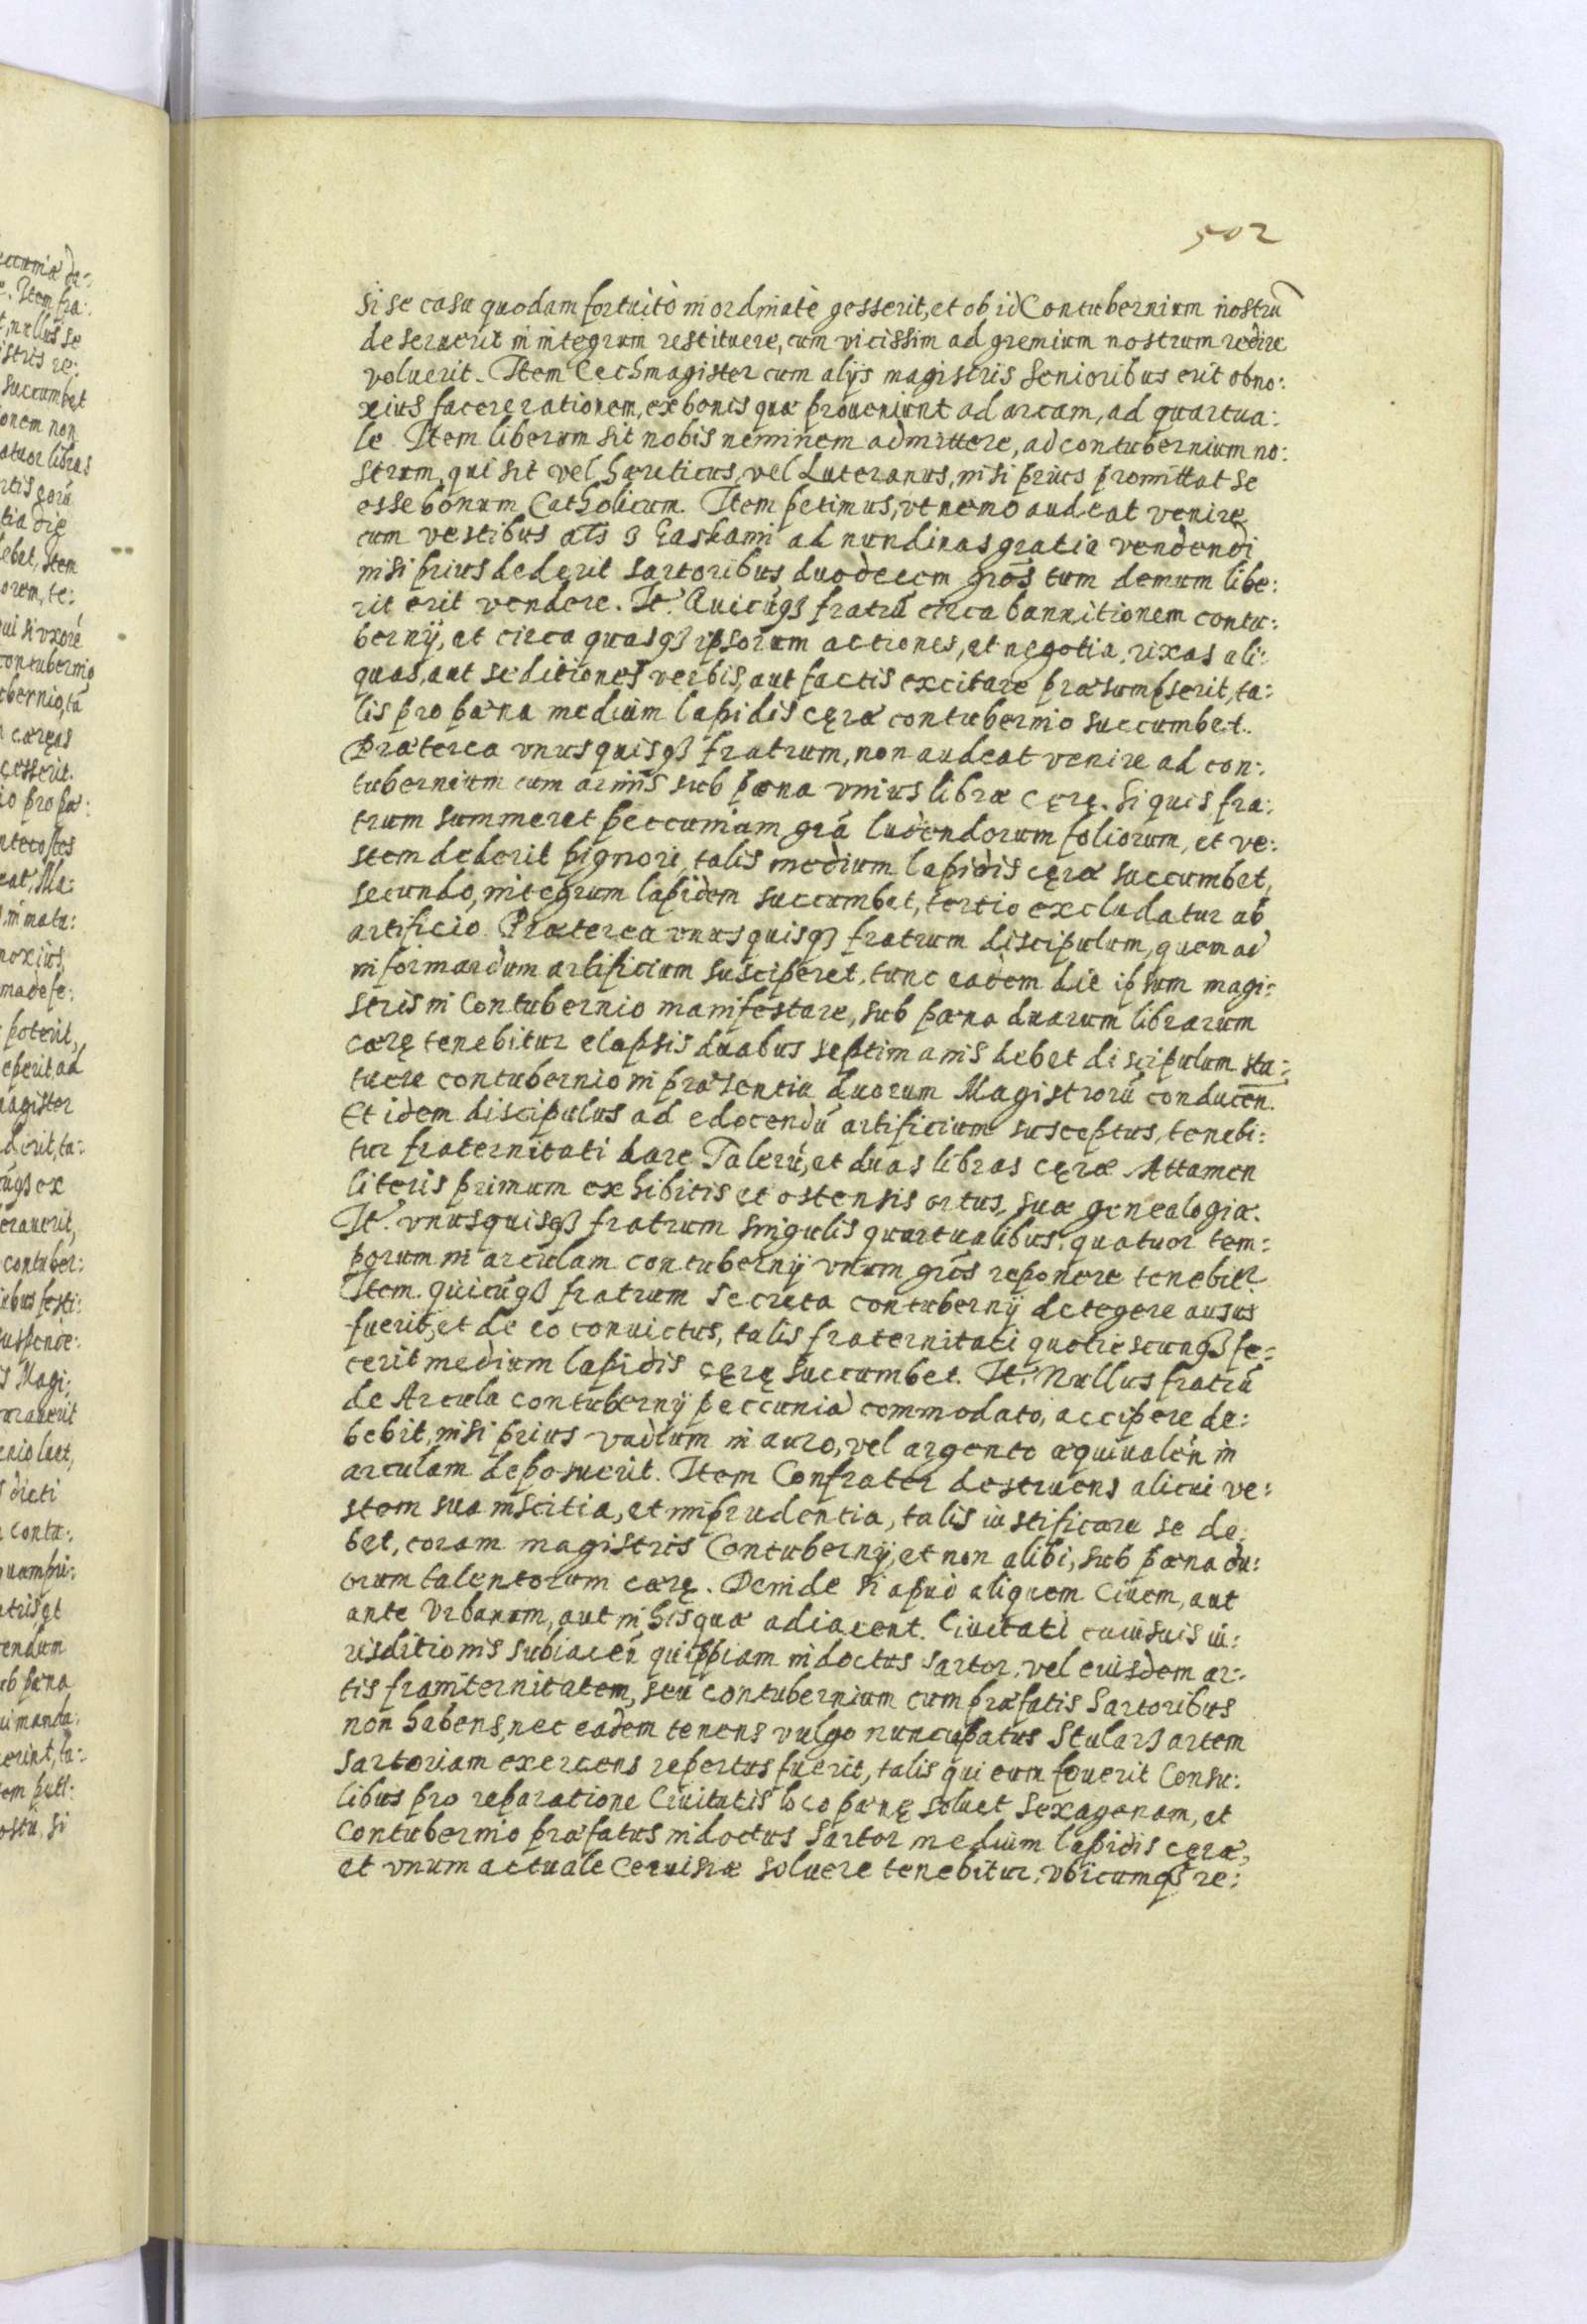 502
si se casu quodam fortuitò inordinatè gesserit, et ob id Contubernium nostrũ
deseruerit in integrum restituere, cum vicissim ad gremium nostrum redire
voluerit. Item Cechmagister cum alijs magistris Senioribus erit obno:
xius facere rationem, ex bonis quæ proueniunt ad arcam, ad quartua:
le. Item liberum sit nobis neminem admittere, ad contubernium no:
strum, qui sit vel hæreticus, vel Luteranus, nisi prius promittat se
esse bonum Catholicum. Item petimus, vt nemo audeat venire
cum vestibus als z Gaskami ad nundinas gratia vendendi
nisi prius dederit sartoribus duodecem grõs tum demum libe:
rit erit vendere. It. Quicũqꝫ fratrũ circa bannitionem contu:
bernÿ, et circa quasqꝫ ipsorum actiones, et negotia, rixas ali:
quas, aut seditiones verbis, aut factis excitare præsumpserit, ta:
lis pro pæna medium lapidis cęræ contubernio succumbet.
Præterea vnusquisqꝫ fratrum, non audeat venire ad con:
tubernium cum armis sub pæna vnius libræ cęrę. Si quis fra:
trum summeret peccuniam grã ludendorum foliorum, et ve:
stem dederit pignori, talis medium lapidis cęræ succumbet,
secundo, integrum lapidem succumbet, tertio excludatur ab
artificio. Præterea vnusquisqꝫ fratrum discipulum, quem ad
informandum artificium susciperet, tunc eadem die ipsum magi:
stris in Contubernio manifestare, sub pæna duarum librarum
cærę tenebitur elapsis duabus septimanis debet discipulum sta:
tuere contubernio in præsentia duorum Magistrorũ conducen.
Et idem discipulus ad edocendũ artificium susceptus, tenebi:
tur fraternitati dare Talerũ, et duas libras cęræ. Attamen
literis primum exhibitis et ostensis ortus, suæ genealogiæ.
It. vnusquisqꝫ fratrum singulis quartualibus, quatuor tem:
porum in arculam contubernÿ vnum grõs reponere tenebitr.
Item. quicũqꝫ fratrum secreta contubernÿ detegere ausus
fuerit, et de eo conuictus, talis fraternitati quotiescunqꝫ fe:
cerit medium lapidis cęrę succumbet. It. Nullus fratrũ
de Arcula contubernÿ peccunia commodato, accipere de:
bebit, nisi prius vadium in auro, vel argento æquiualẽn in
arculam deposuerit. Item Confrater destruens alicui ve:
stem sua inscitia, et imprudentia, talis iustificare se de:
bet, coram magistris Contubernÿ, et non alibi, sub pæna du:
orum talentorum cærę. Deinde si apud aliquem Ciuem, aut
ante Vrbanum, aut in his quæ adiacent. Ciuitati cuiusuis iu:
risditionis subiacẽn quippiam indoctus sartor, vel eiusdem ar:
tis framternitatem, seu contubernium cum præfatis Sartoribus
non habens, nec eadem tenens vulgo nuncupatus Stularz artem
sartoriam exercens repertus fuerit, talis qui eum fouerit Consu:
libus pro reparatione Ciuitatis loco pænę soluet sexagenam, et
Contubernio præfatus indoctus Sartor medium lapidis cęræ,
et vnum actuale Ceruisiæ soluere tenebitur, vbicumqꝫ re: